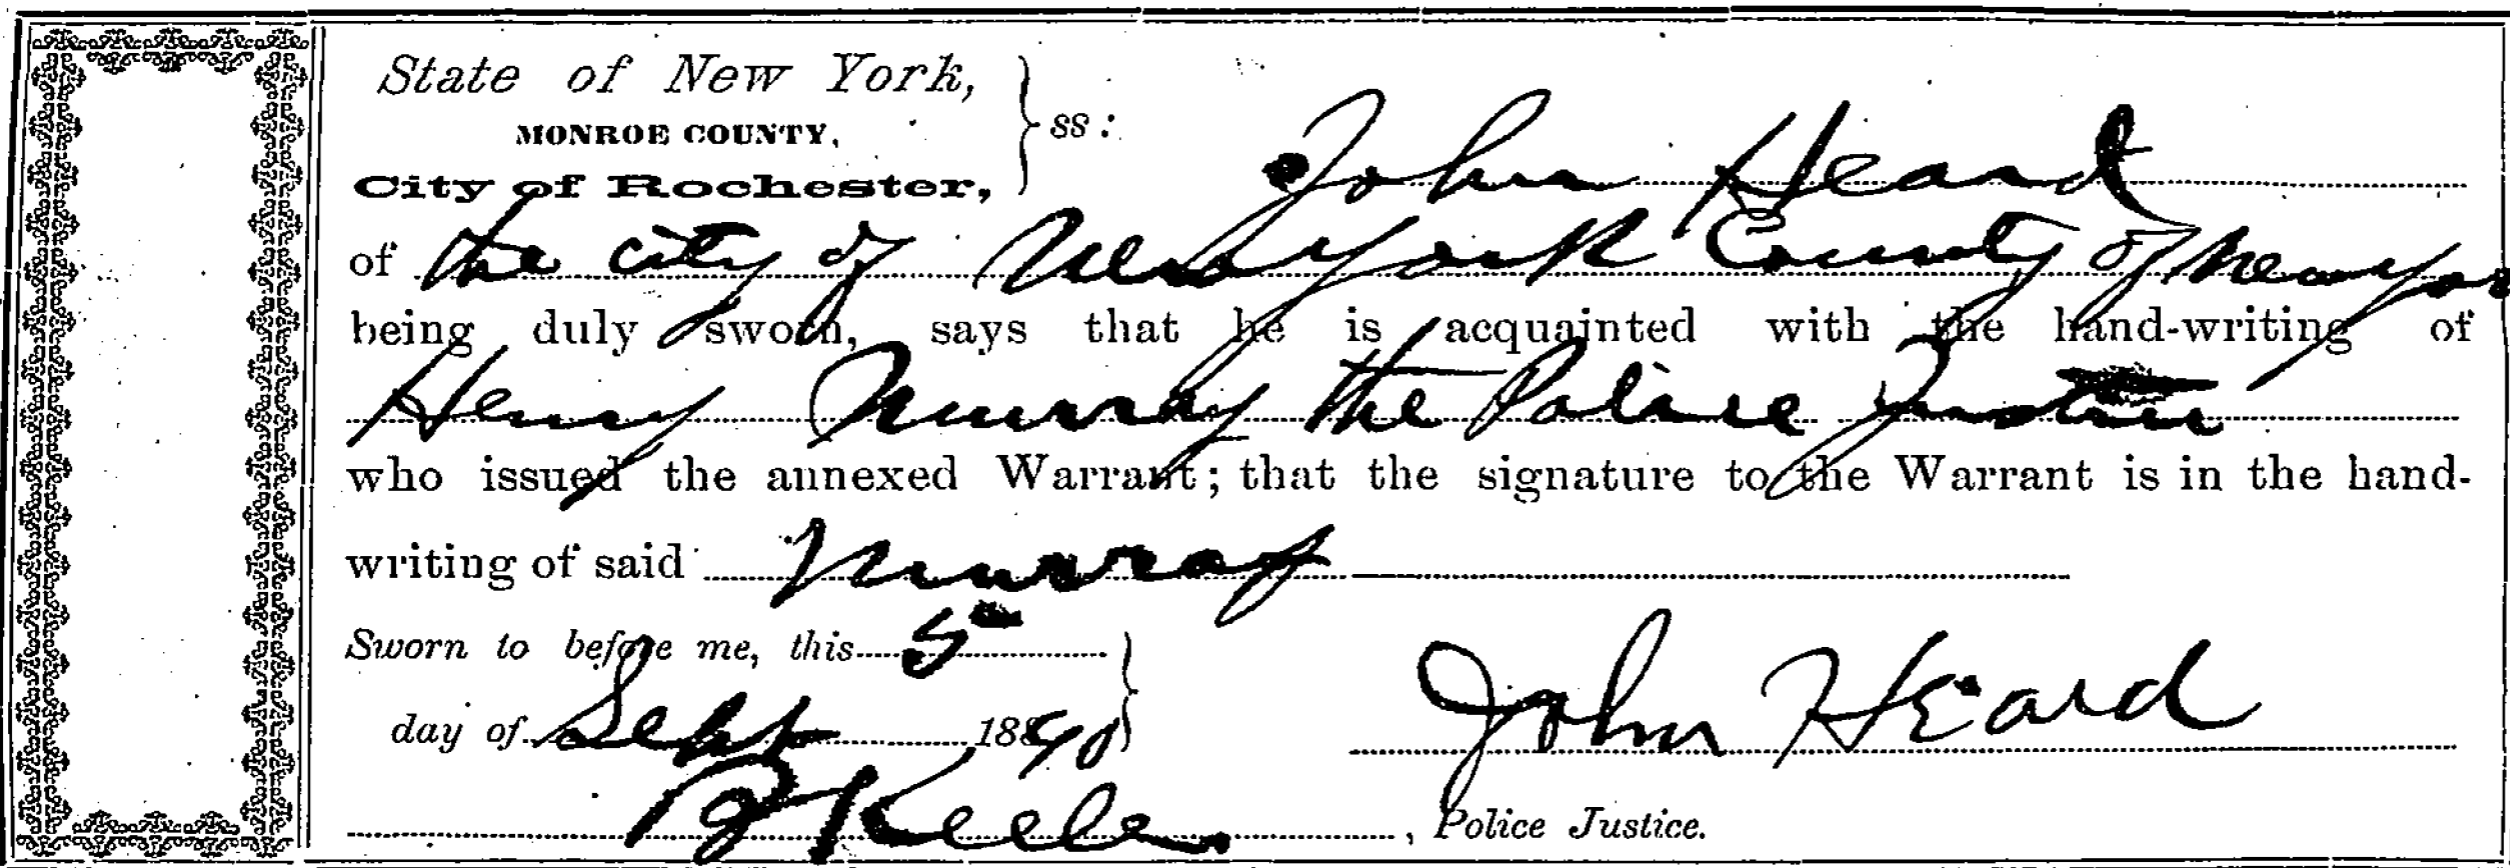 State of New York,
MONROE COUNTY,
City of Rochester,
ss:
John Heard
of the city of New York County of New Yor
being duly sworn, says that he is acquainted with the hand-writing of
Henry Murray the Police Justice
who issued the annexed Warrant; that the signature to the Warrant is in the hand-
writing of said Murray
Sworn to before me, this 5th
day of Sept 1890
John Heard
B Keeler, Police Justice.